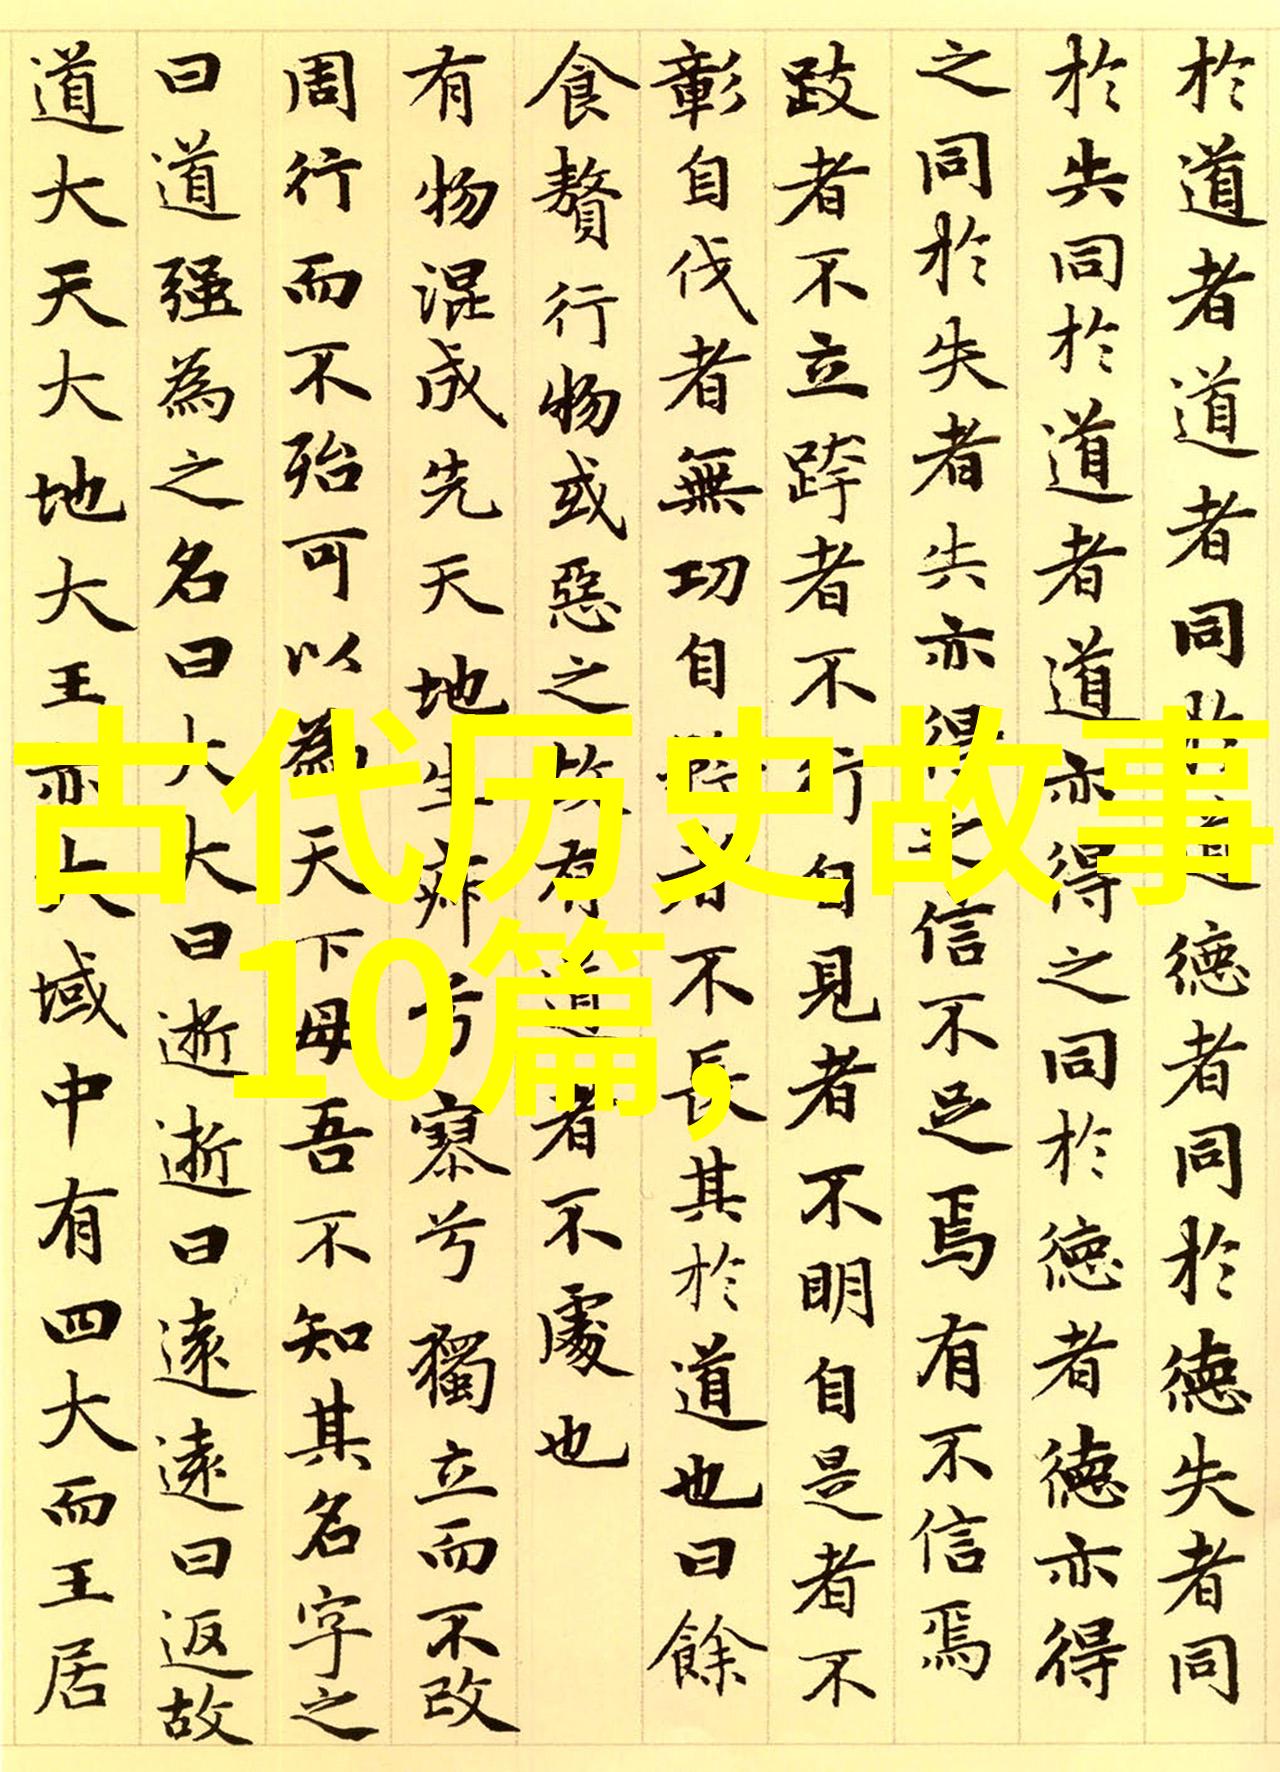 於道者道者同於道德者同於德失者同
於失同於道者道亦得之同於德者德亦得
之同於失者失亦得之信不足焉有不信焉
跂者不立跨者不行自見者不明自是者不
彰自伐者無功自矜者不長其於道也曰餘
食贅行物或惡之故有道者不處也
有物混成先天地生寂兮寥兮獨立而不改
周行而不殆可以為天下母吾不知其名字之
曰道强為之名曰大大曰逝逝曰遠遠曰返故
道大天大地大王亦大域中有四大而王居
古代历史故事
10篇,